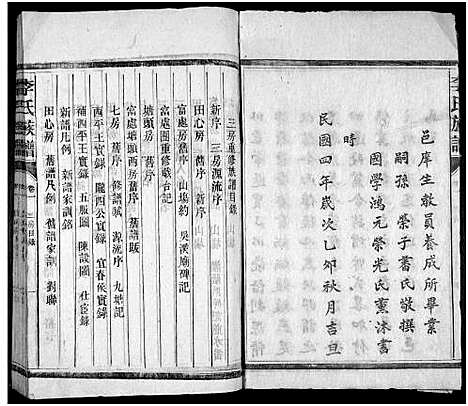 李氏族譜
邑庠生教員養成所畢業
嗣孫榮子書氏敬撰
國學鴻元榮光氏熏沐書
時
民國四年歲次乙卯秋月吉旦
三房重修族譜目錄
新序 三房源流序
田心房 舊序 新序
富處房舊序 山場約 吳漢廟碑記
富處園重修墩台記
塘頭房 舊序
富處塘頭西房舊序 舊譜跋
七房 舊序 修譜序 源流序 九塘記
西平王實錄 隴西公實錄 宜春侯實錄
補西平王實錄 五服圖 陳設圖 仕宦錄
新譜凡例 新譜家訓銘
田心房 舊譜凡例 舊譜家訓 劉聯
李氏族譜
卷一
三房目錄